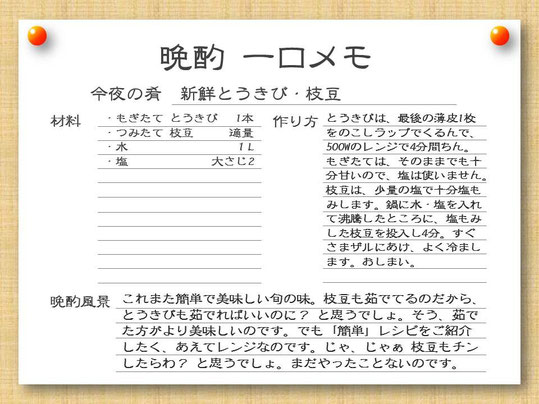 晩酌 一口メモ
今夜の肴 新鮮とうきび・枝豆
材料
・もぎたて とうきび 1本
・つみたて 枝豆 適量
・水 1L
・塩 大さじ2
作り方
とうきびは、最後の薄皮1枚
をのこしラップでくるんで、
500Wのレンジで4分間ちん。
もぎたては、そのままでも十
分甘いので、塩は使いません。
枝豆は、少量の塩で十分塩も
みします。鍋に水・塩を入れ
て沸騰したところに、塩もみ
した枝豆を投入し4分。すぐ
さまザルにあけ、よく冷まし
ます。おしまい。
晩酌風景
これまた簡単で美味しい旬の味。枝豆も茹でてるのだから、
とうきびも茹でればいいのに? と思うでしょ。そう、茹で
た方がより美味しいのです。でも「簡単」レシピをご紹介
したく、あえてレンジなのです。じゃ、じゃぁ 枝豆もチン
したらわ? と思うでしょ。まだやったことないのです。